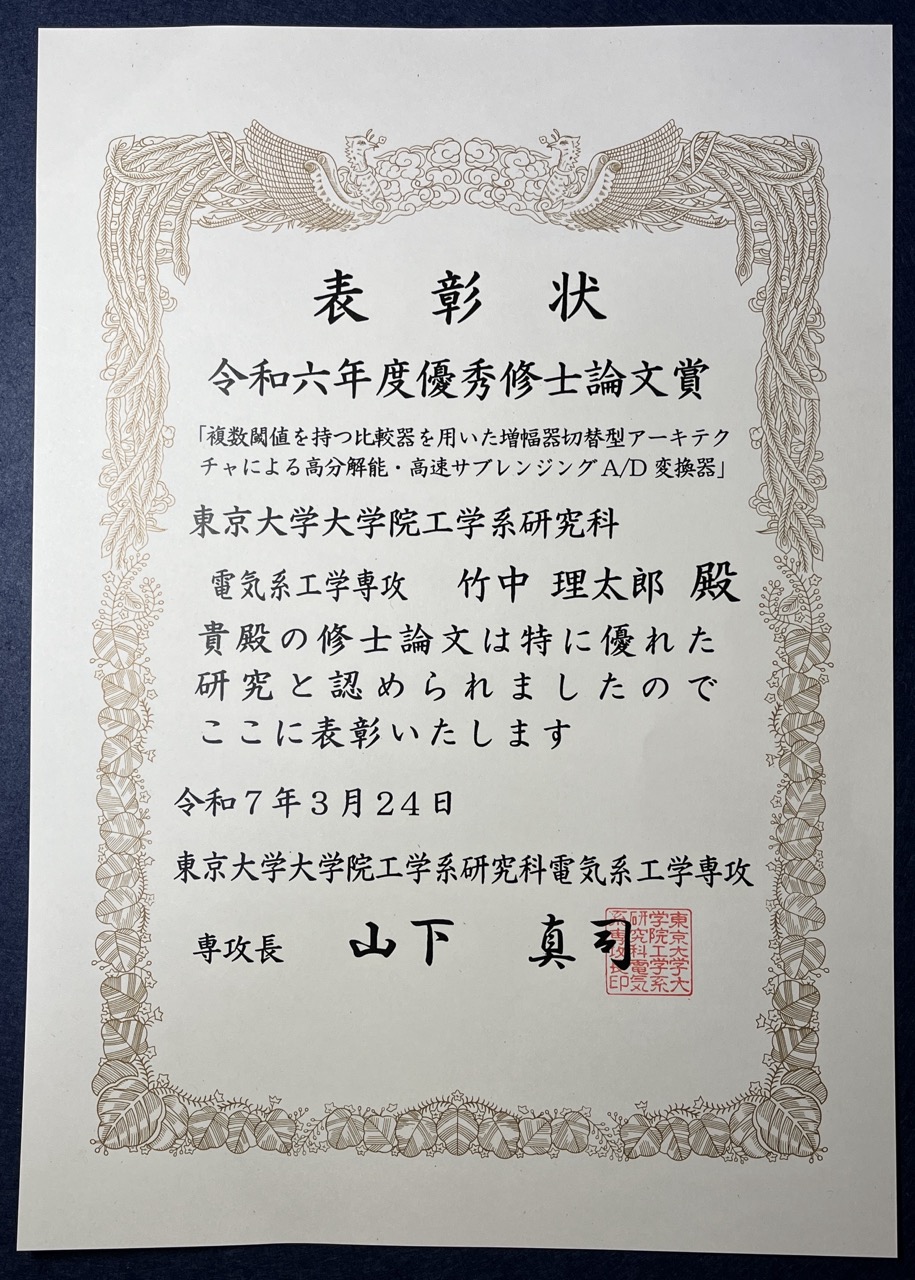 表彰状
令和六年度優秀修士論文賞
「複数閾値を持つ比較器を用いた増幅器切替型アーキテク
チャによる高分解能・高速サブレンジングA/D変換器」
東京大学大学院工学系研究科
電気系工学専攻 竹中 理太郎 殿
貴殿の修士論文は特に優れた
研究と認められましたので
ここに表彰いたします
令和7年3月24日
東京大学大学院工学系研究科電気系工学専攻
専攻長 山下 真司
東京大学大
学院工学系
研究科電気
系専攻長印